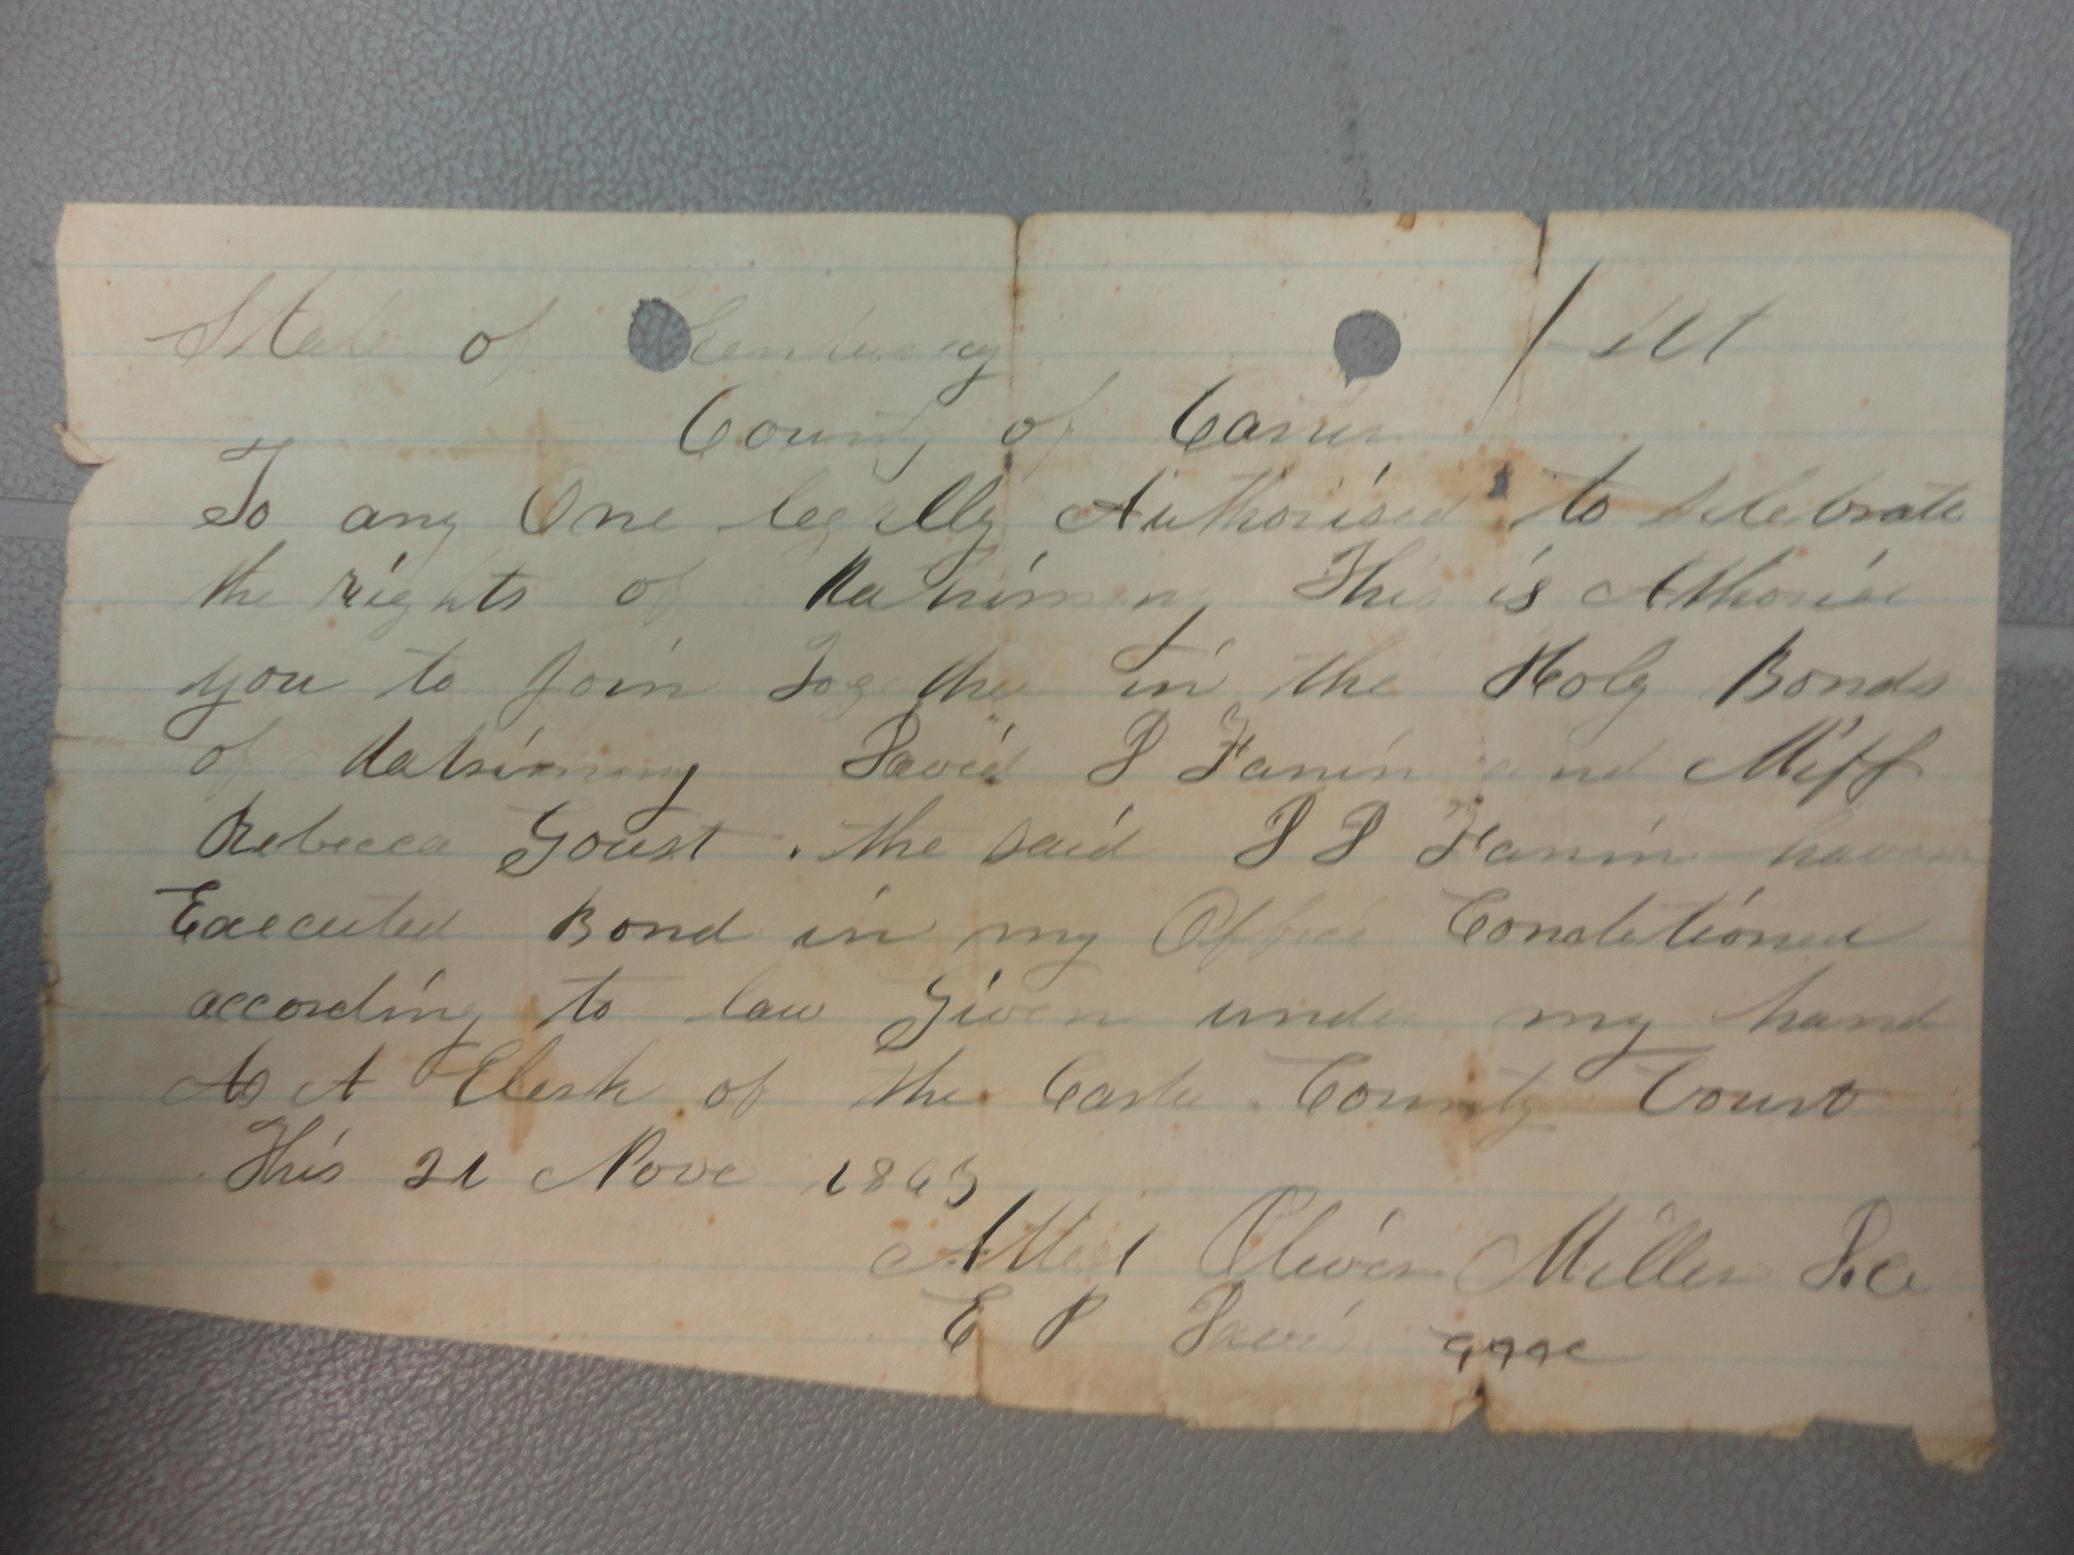 State of Kentucky / Sct
County of Carter
To any One legally Authorised to Selebrate
the rights of Matrimony This is Athorise
you to Join Together in the Holy Bonds
of Matrimony David D Fanin and Miss
Rebecca Goust . the said D D Fanin haven
Executed Bond in my Office Conditioned
according to law Given under my hand
As A Clerk of the Carter County Court
This 21 Nove 1865
Attest Oliver Miller
E P Davis